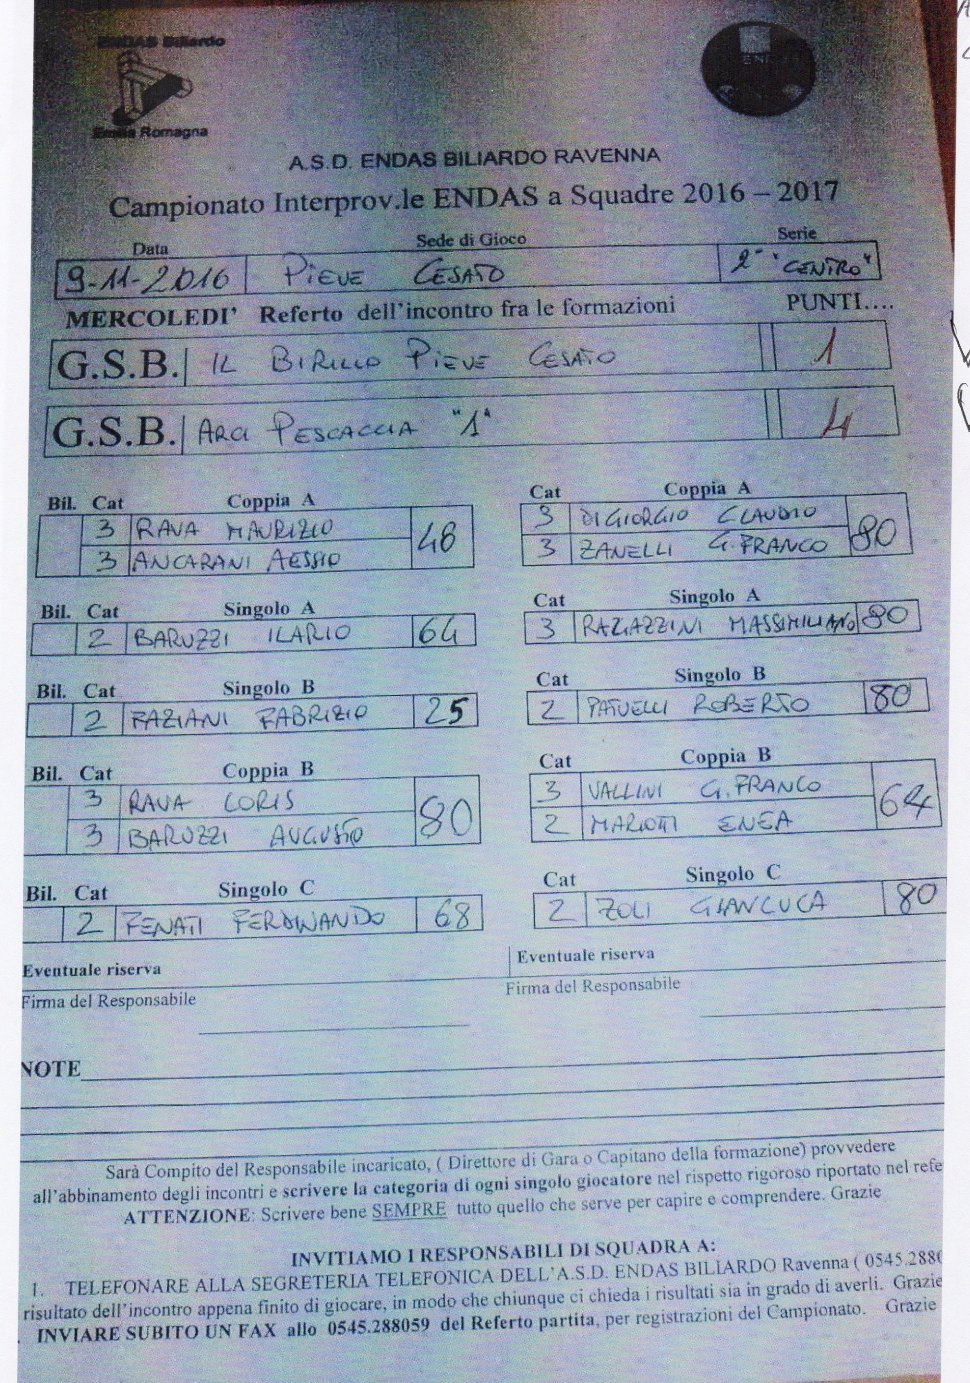 ENDAS Biliardo
Emilia Romagna
A.S.D. ENDAS BILIARDO RAVENNA
Campionato Interprov.le ENDAS a Squadre 2016 – 2017
Data Sede di Gioco Serie
9-11-2016 PIEVE CESATO 2° "CENTRO"
MERCOLEDI' Referto dell'incontro fra le formazioni PUNTI....
G.S.B. IL BIRILLO PIEVE CESATO 1
G.S.B. ARCI PESCACCIA "1" 4
Bil. Cat Coppia A Cat Coppia A
3 RAVA MAURIZIO 48 3 DI GIORGIO CLAUDIO 80
3 ANCARANI AESSIO 3 ZANELLI G. FRANCO
Bil. Cat Singolo A Cat Singolo A
2 BARUZZI ILARIO 64 3 RAGAZZINI MASSIMILIANO 80
Bil. Cat Singolo B Cat Singolo B
2 FAZIANI FABRIZIO 25 2 PATUELLI ROBERTO 80
Bil. Cat Coppia B Cat Coppia B
3 RAVA LORIS 80 3 VALLINI G. FRANCO 64
3 BARUZZI AUGUSTO 2 MARIOTTI ENEA
Bil. Cat Singolo C Cat Singolo C
2 FENATI FERDINANDO 68 2 ZOLI GIANLUCA 80
Eventuale riserva Eventuale riserva
Firma del Responsabile Firma del Responsabile
NOTE
Sarà Compito del Responsabile incaricato, ( Direttore di Gara o Capitano della formazione) provvedere
all'abbinamento degli incontri e scrivere la categoria di ogni singolo giocatore nel rispetto rigoroso riportato nel refe
ATTENZIONE: Scrivere bene SEMPRE tutto quello che serve per capire e comprendere. Grazie
INVITIAMO I RESPONSABILI DI SQUADRA A:
1. TELEFONARE ALLA SEGRETERIA TELEFONICA DELL'A.S.D. ENDAS BILIARDO Ravenna ( 0545.2880
risultato dell'incontro appena finito di giocare, in modo che chiunque ci chieda i risultati sia in grado di averli. Grazie
INVIARE SUBITO UN FAX allo 0545.288059 del Referto partita, per registrazioni del Campionato. Grazie